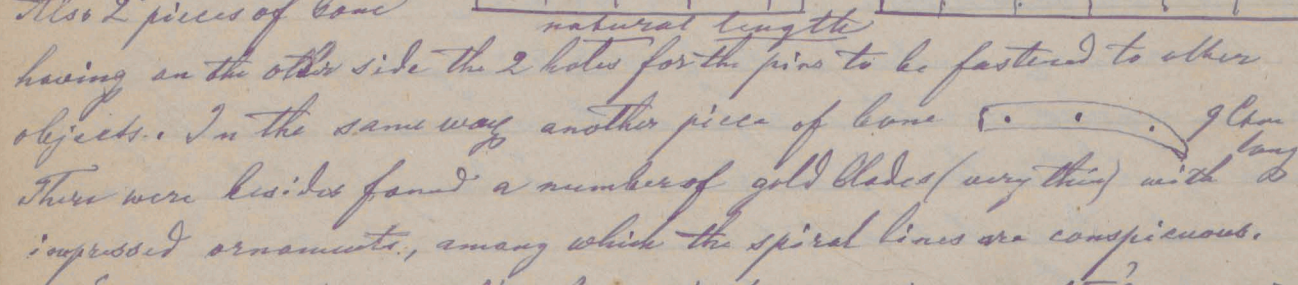 Also 2 pieces of bone
natural length
having on the other side the 2 holes for the pins to be fastened to other
objects. In the same way another piece of bone 9 Cm
long
There were besides found a number of gold blades (very thin) with
impressed ornaments, among which the spiral lines are conspicuous.